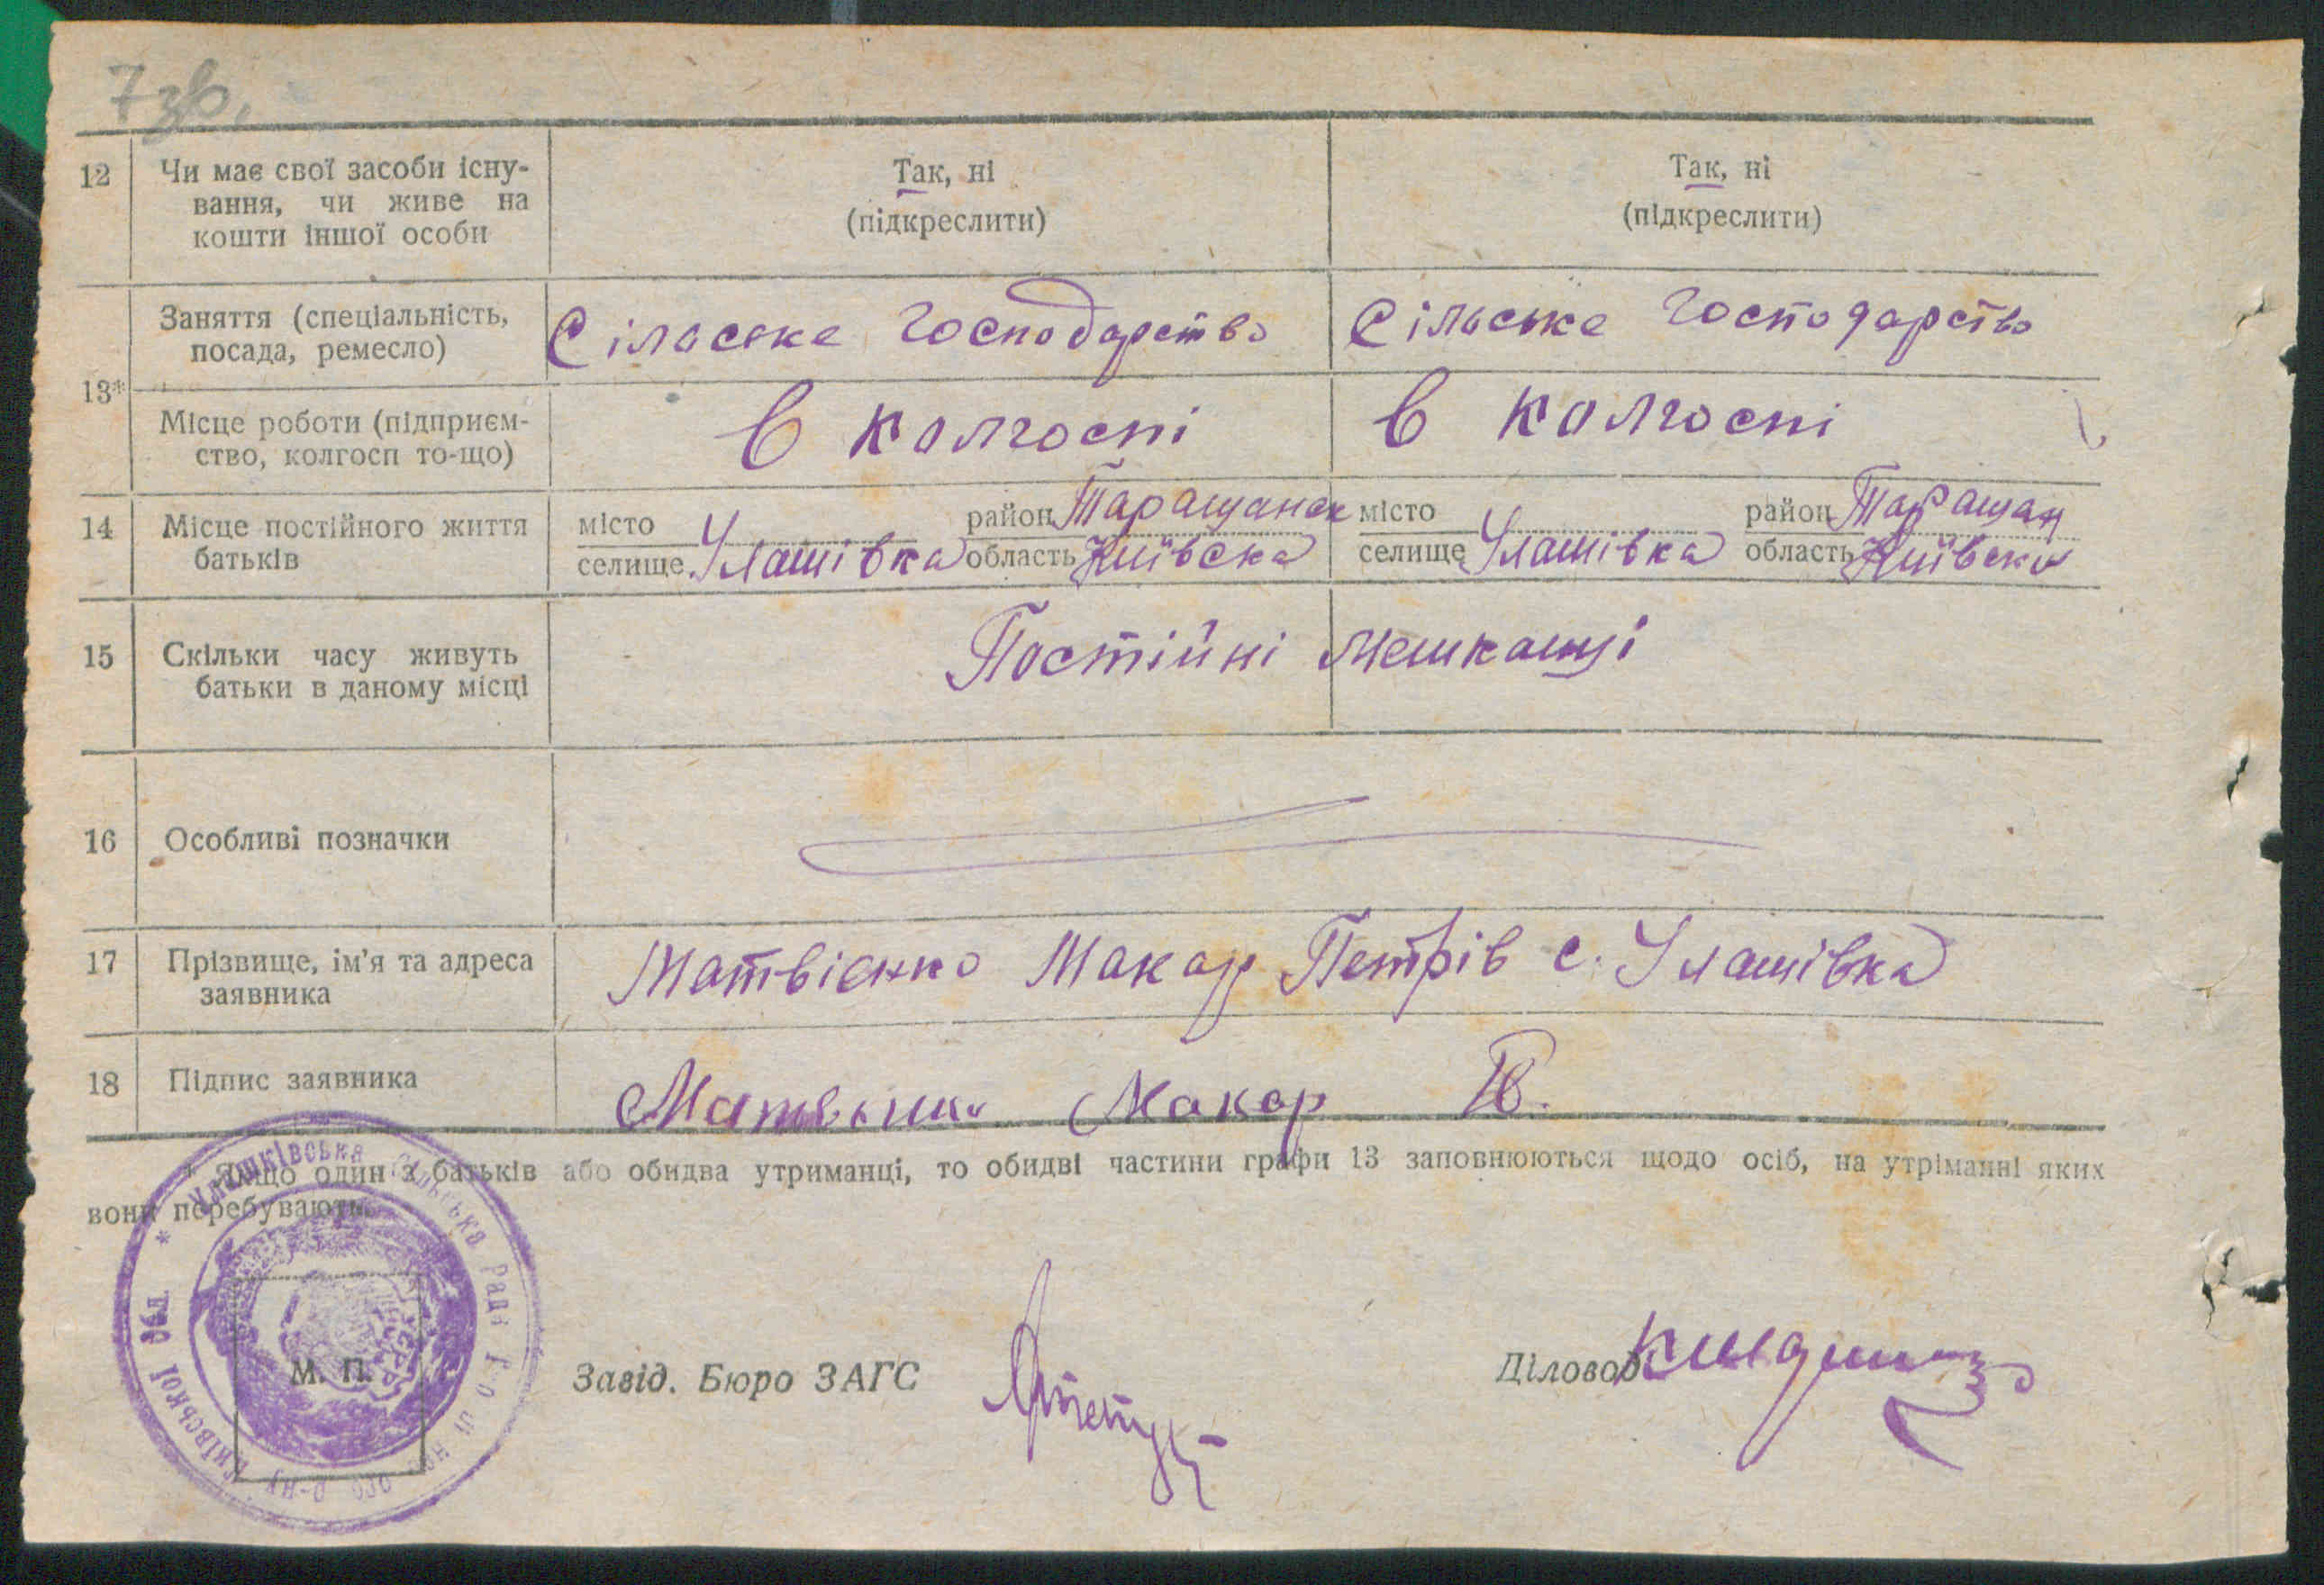 7 зв.
12 Чи має свої засоби існу- Так, ні Так, ні
вання, чи живе на (підкреслити) (підкреслити)
кошти іншої особи
Заняття (спеціальність, Сільське Господарство Сільське Господарство
посада, ремесло)
13*
Місце роботи (підприєм- В колгоспі В колгоспі
ство, колгосп то-що)
14 Місце постійного життя місто район Таращанск місто район Таращан
батьків селище Улашівка область Київска селище Улашівка область Київска
15 Скільки часу живуть Постійні мешканці
батьки в даному місці
16 Особливі позначки
17 Прізвище, ім'я та адреса Матвієнко Макар Петрів с. Улашівка
заявника
18 Підпис заявника Макар П.
* Якщо один з батьків або обидва утриманці, то обидві частини графи 13 заповнюються щодо осіб, на утріманні яких
вони перебувають.
М. П. Завід. Бюро ЗАГС Діловод
Улашківська Сільська Рада Київської Обл.